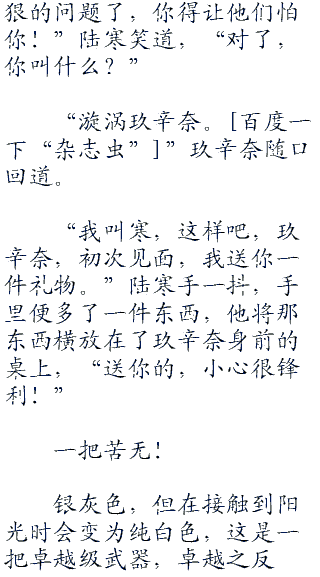 狠的问题了，你得让他们怕
你！”陆寒笑道，“对了，
你叫什么？”
“漩涡玖辛奈。[百度一
下“杂志虫”]”玖辛奈随口
回道。
“我叫寒，这样吧，玖
辛奈，初次见面，我送你一
件礼物。”陆寒手一抖，手
里便多了一件东西，他将那
东西横放在了玖辛奈身前的
桌上，“送你的，小心很锋
利！”
一把苦无！
银灰色，但在接触到阳
光时会变为纯白色，这是一
把卓越级武器，卓越之反